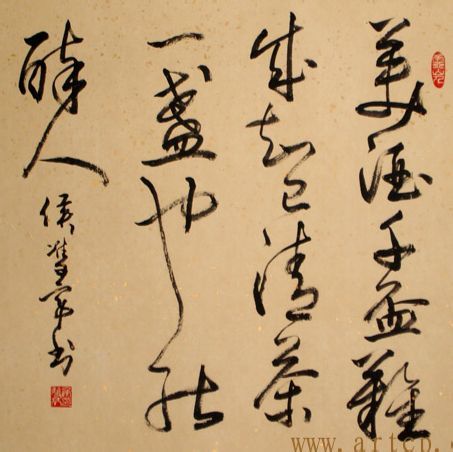 美酒千盃難
成知己清茶
一盞也能
醉人
侯
书
www.artcp.